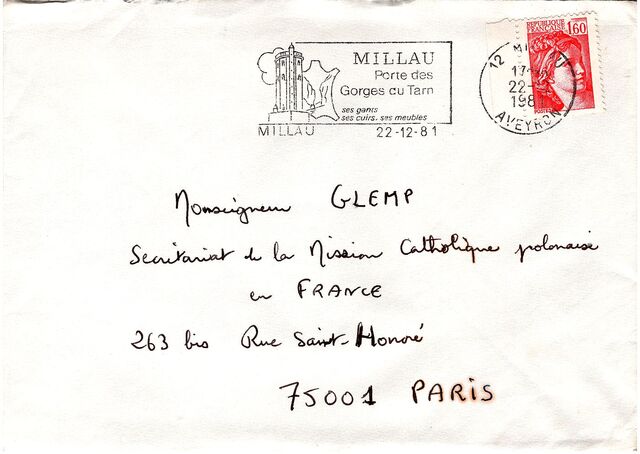 MILLAU
Porte des
Gorges du Tarn
ses gants
ses cuirs, ses meubles
MILLAU 22-12-81
REPUBLIQUE
FRANÇAISE 1,60
12 MILLAU
22-
198
AVEYRON
Monseigneur GLEMP
Secrétariat de la Mission Catholique polonaise
en FRANCE
263 bis Rue Saint-Honoré
75001 PARIS